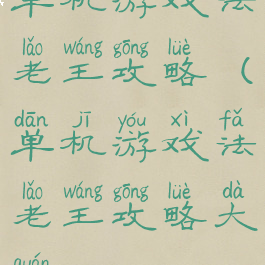 单机游戏法
lǎo wáng gōng lüè
老王攻略（
dān jī yóu xì fǎ
单机游戏法
lǎo wáng gōng lüè dà
老王攻略大
quán